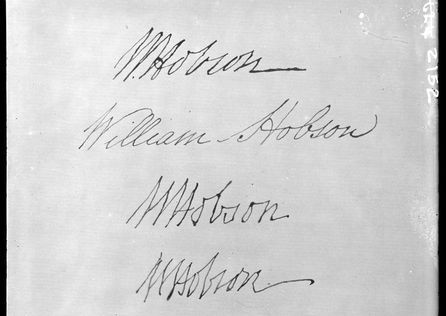 W. Hobson
William Hobson
W Hobson
W Hobson